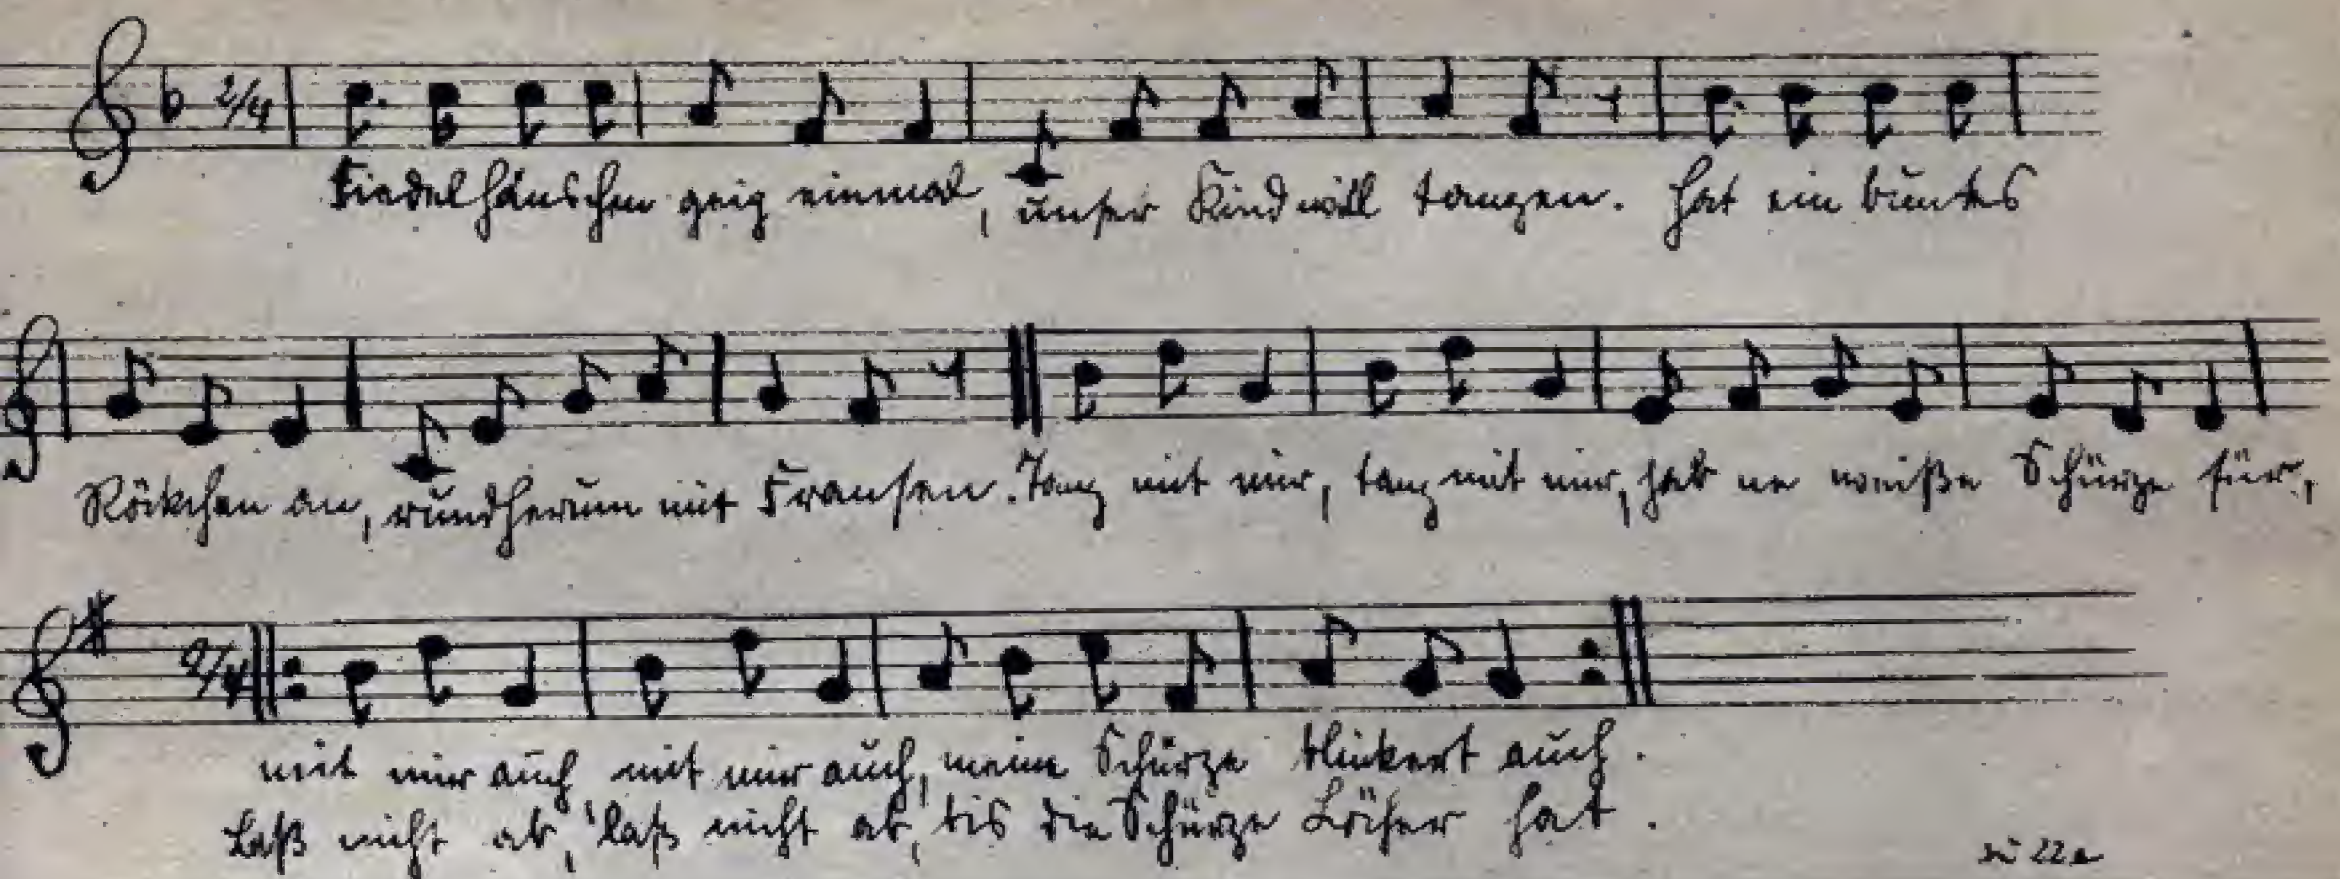 2/4
Fiedelhänschen geig einmal, unser Kind will tanzen. Hat ein buntes
Röckchen an, rundherum mit Fransen. Tanz mit mir, tanz mit mir, hab ne weiße Schürze für,
2/4
mit mir auch mit mir auch, meine Schürze flickert auch.
Laß nicht ab, laß nicht ab, bis die Schürze Löcher hat.
zu 22a